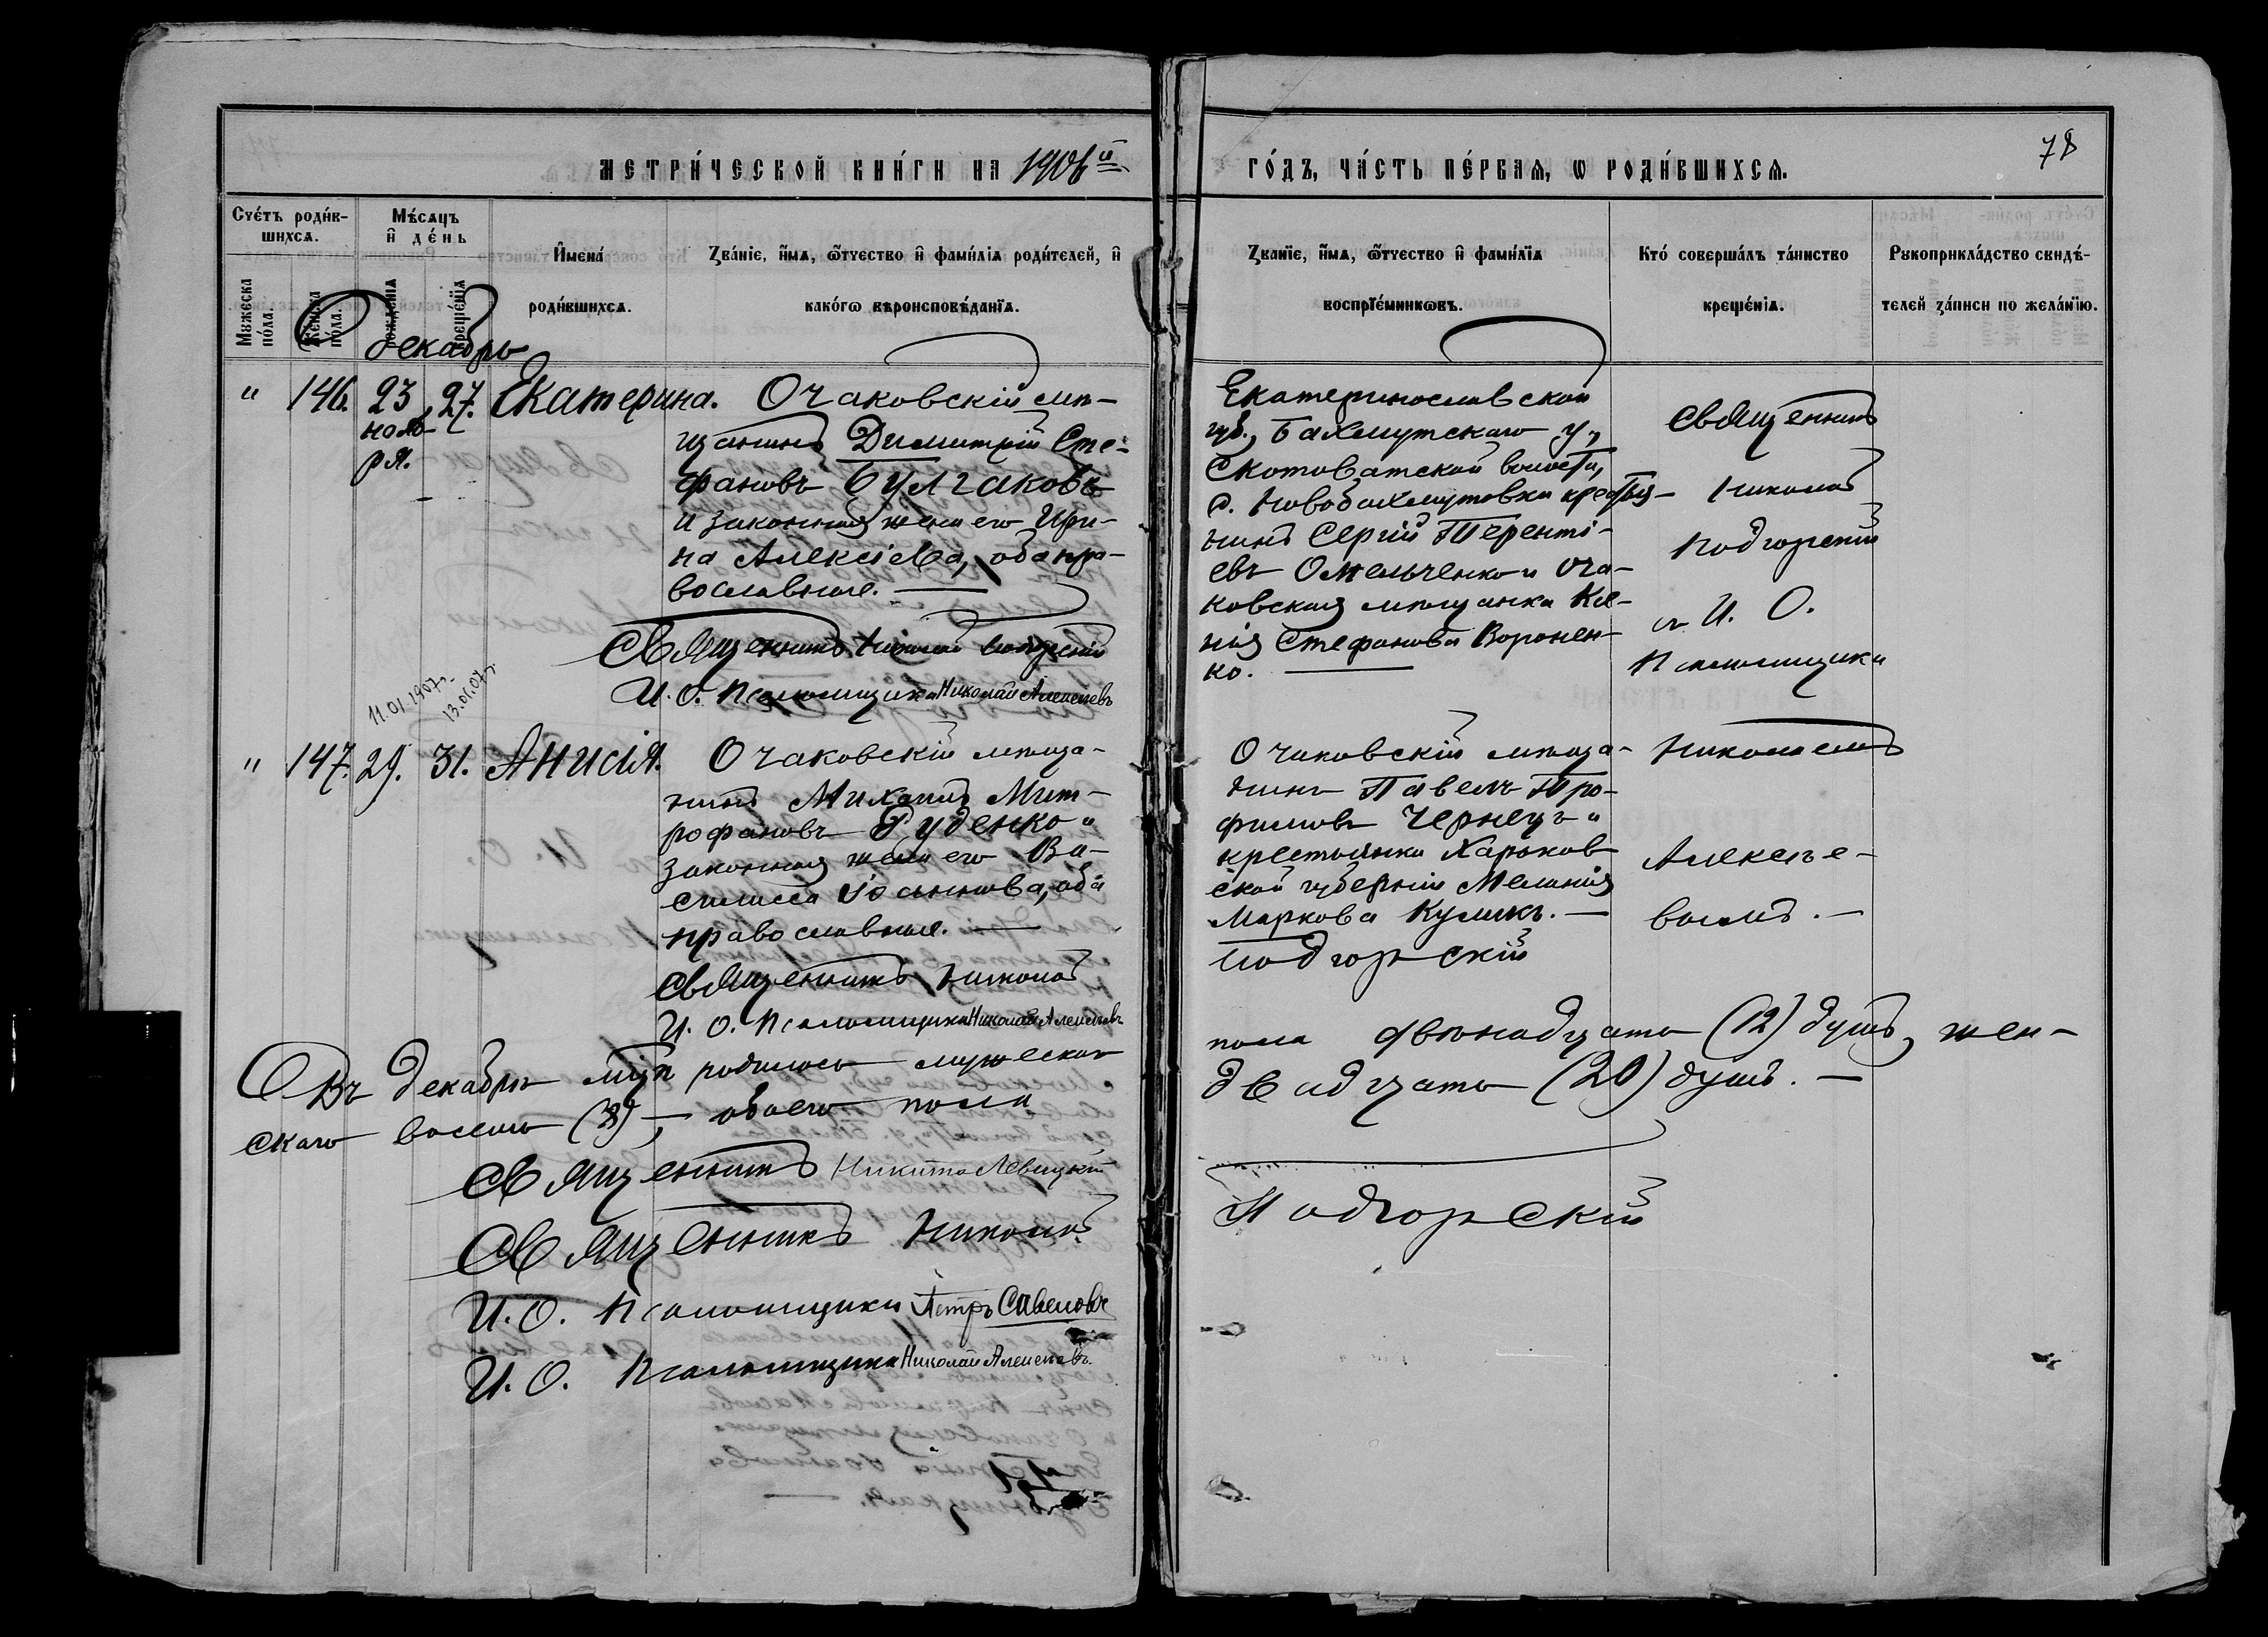 МЕТРИ́ЧЕСКОЙ КНИ́ГИ НА 1906й
ГО́ДЪ, ЧА́СТЬ ПЕ́РВАѦ, Ѡ РОДИ́ВШИХСѦ.
78
Сче́тъ роди́в-
шихсѧ.
Мѣ́сѧцъ
и҆ де́нь
И҆мена̀
роди́вшихсѧ.
Зва́нїе, и҆́мѧ, ѻ҆́тчество и҆ фами́лїѧ роди́телей, и҆
како́гѡ вѣроисповѣ́данїѧ.
Зва́нїе, и҆́мѧ, ѻ҆́тчество и҆ фами́лїѧ
воспрїе́мникѡвъ.
Кто́ соверша́лъ та́инство
креще́нїѧ.
Рꙋкоприкла́дство свидѣ́-
телей за́писи по жела́нїю.
Мꙋжеска
по́ла.
Же́нска
по́ла.
рожде́нїѧ
креще́нїѧ
Декабрь
" 146. 23 27. Екатерина.
нояб-
ря.
Очаковскій мѣ-
щанинъ Димитрій Сте-
фановъ Булгаковъ
и законная жена его Ири-
на Алексіева, оба пра-
вославные.
Священникъ Николай Подгорскій
И. О. Псаломщика Николай Алексѣевъ
Екатеринославской
губ., Бахмутскаго у.,
Скотоватской волости,
с. Новобахмутовки кресть-
нинъ Сергій Теренті-
евъ Омельченко и Оча-
ковская мѣщанка Ксе-
нія Стефанова Воронен-
ко.
Священникъ
Николай
Подгорскій
съ И. О.
Псаломщика
11.01.1907г.
13.01.07г.
" 147. 29. 31. Анисія.
Очаковскій мѣща-
нинъ Михаилъ Мит-
рофановъ Руденко и
законная жена его Ва-
силисса Іоаннова, оба
православные.
Священникъ Николай
И. О. Псаломщика Николай Алексѣевъ
Очаковскій мѣща-
нинъ Павелъ Тро-
фимовъ Чернецъ и
крестьянка Харьков-
ской губерніи Меланія
Маркова Куликъ.
Подгорскій
Николаемъ
Алексѣе-
вымъ.
Въ декабрѣ мцѣ родилось мужеска
пола двѣнадцать (12) душъ, жен-
скаго восемь (8), обоего пола
двадцать (20) душъ.
Священникъ Никита Левицкій
Священникъ Николай
Подгорскій
И. О. Псаломщика Петръ Савеловъ
И. О. Псаломщика Николай Алексѣевъ.